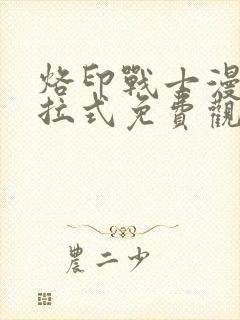 烙印戰士漫
拉式免費觀
農二少